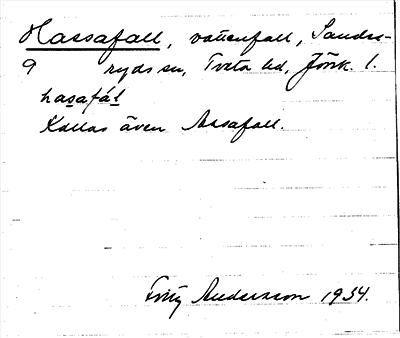 Hassafall, vattenfall, Sanders-
9 ryds sn, Tveta hd, Jönk. l.
hasafál
Kallas även Assafall.
Fritz Andersson 1934.